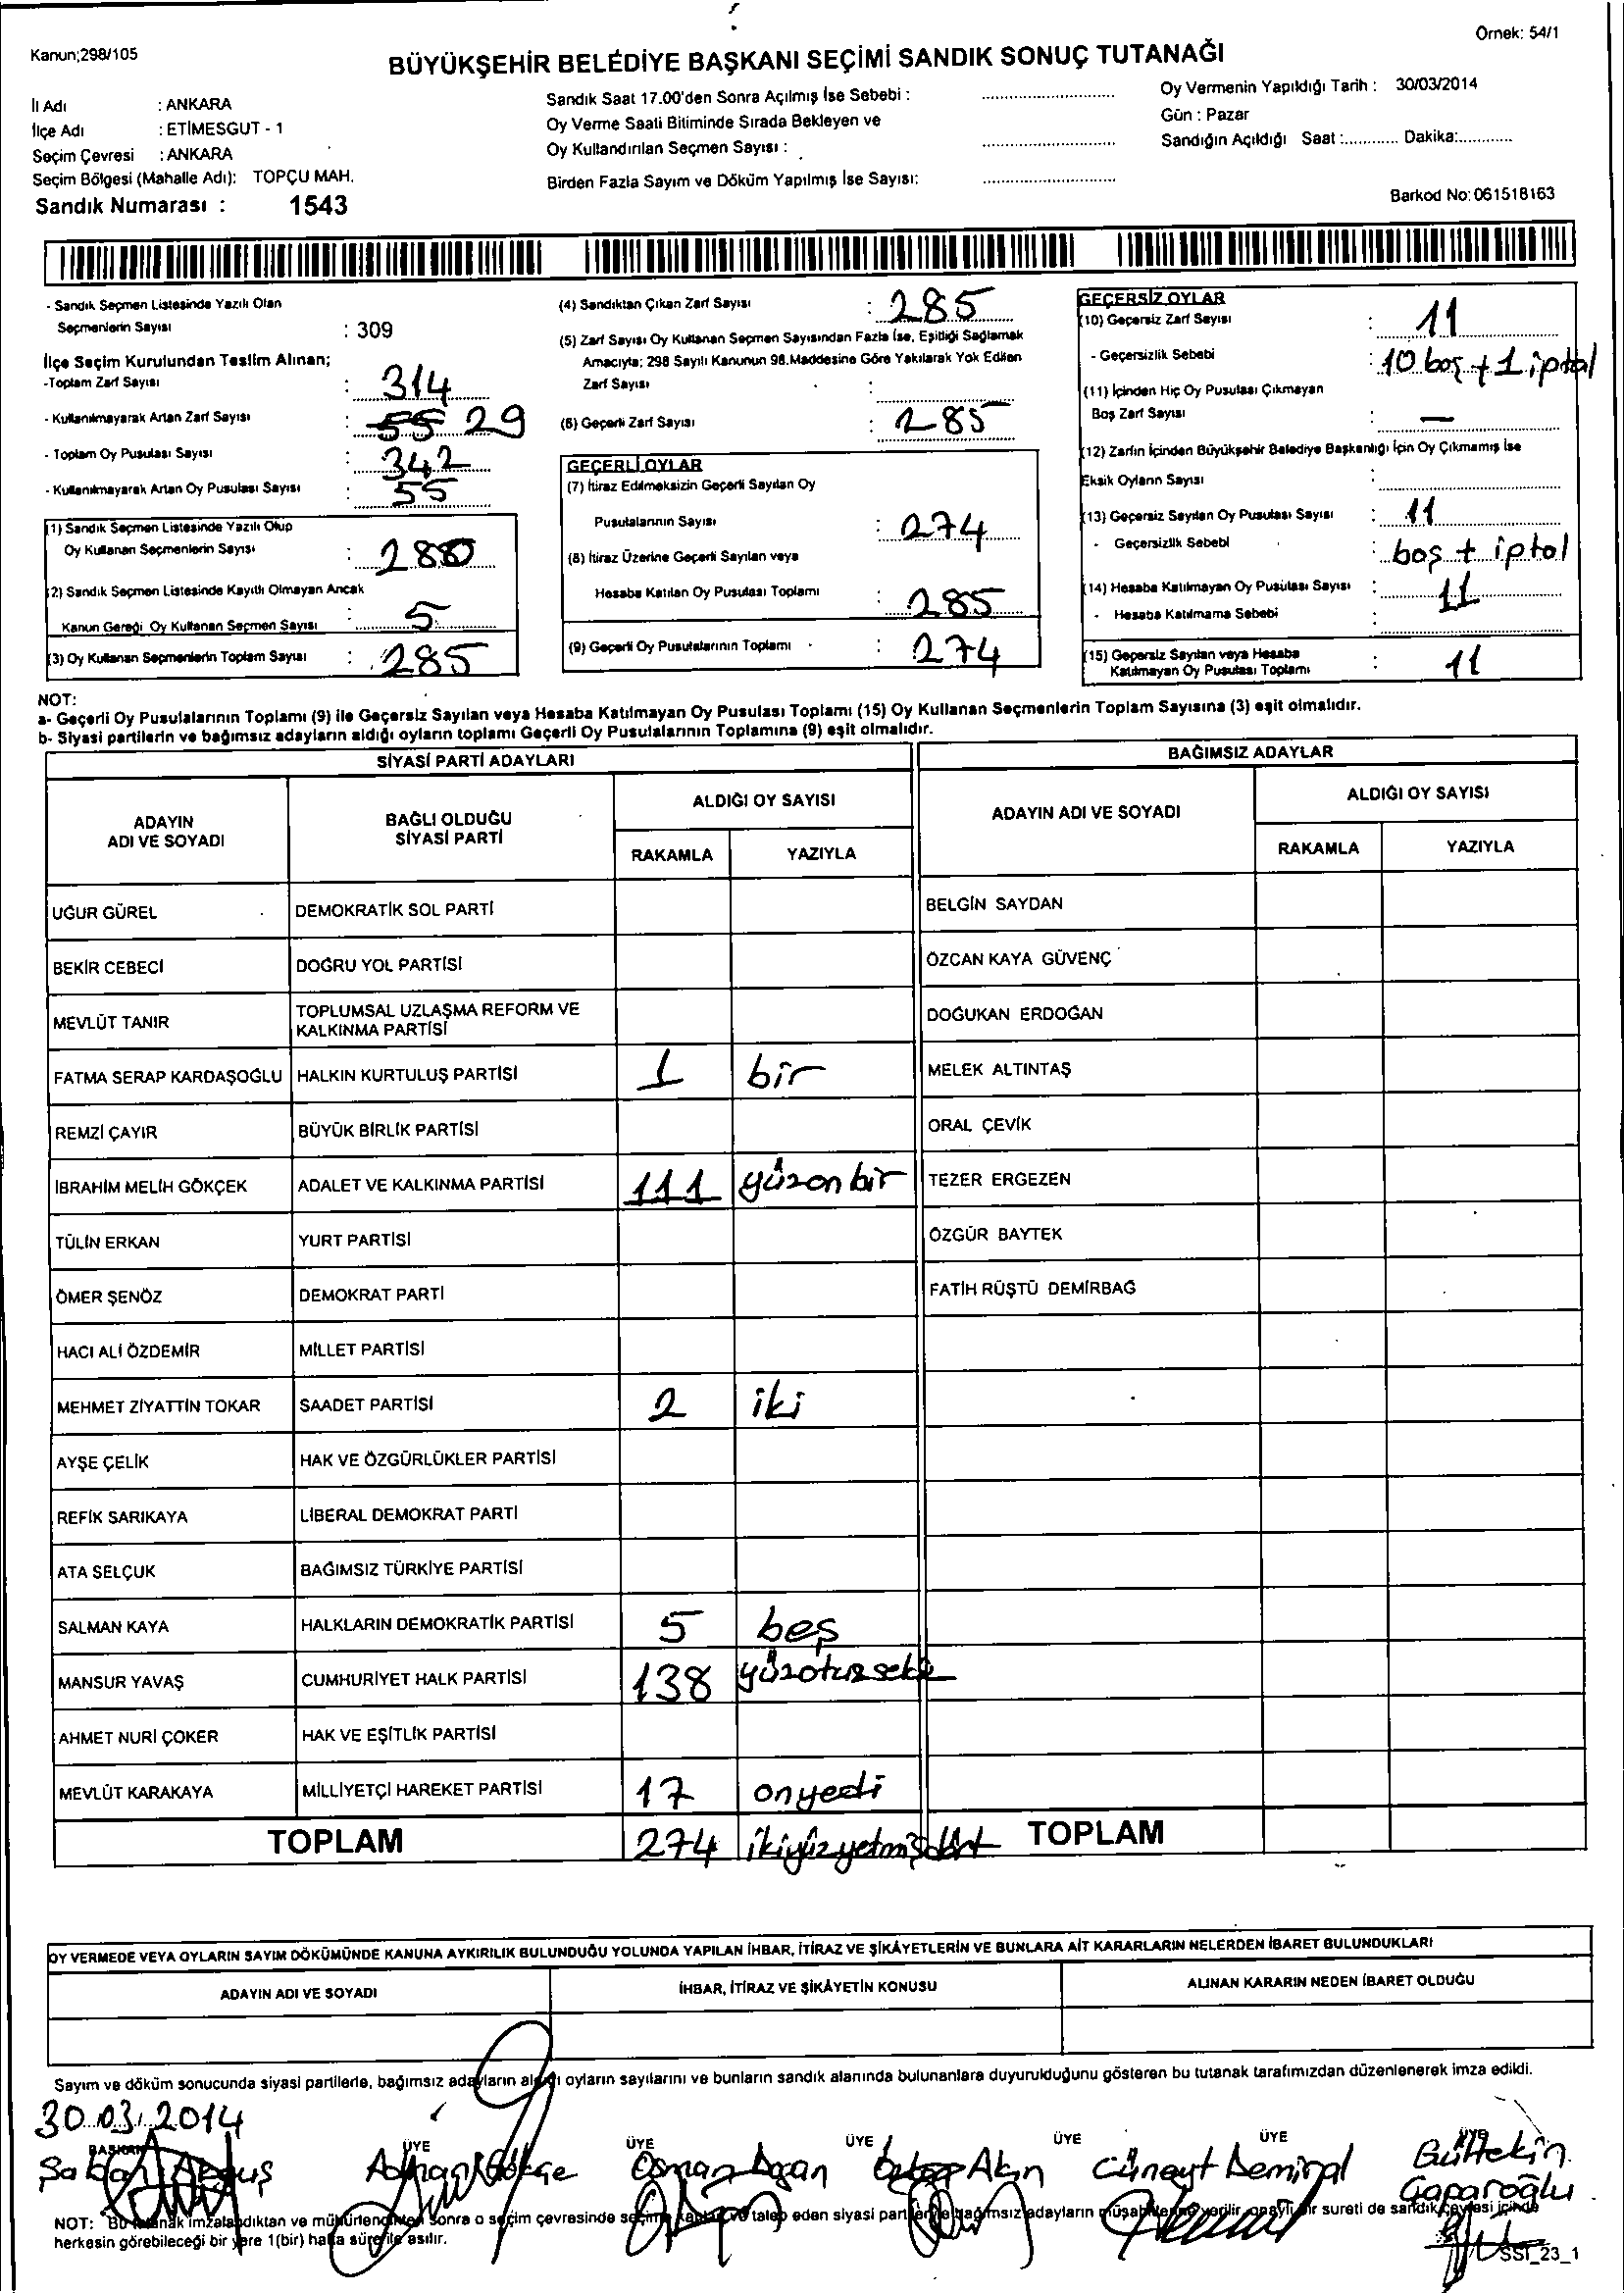 Örnek: 54/1
Kanun;298/105
BÜYÜKŞEHİR BELEDİYE BAŞKANI SEÇİMİ SANDIK SONUÇ TUTANAĞI
İl Adı : ANKARA
İlçe Adı : ETİMESGUT - 1
Seçim Çevresi : ANKARA
Seçim Bölgesi (Mahalle Adı): TOPÇU MAH.
Sandık Numarası : 1543
Sandık Saat 17.00'den Sonra Açılmış İse Sebebi :
Oy Verme Saati Bitiminde Sırada Bekleyen ve
Oy Kullandırılan Seçmen Sayısı :
Birden Fazla Sayım ve Döküm Yapılmış İse Sayısı:
Oy Vermenin Yapıldığı Tarih : 30/03/2014
Gün : Pazar
Sandığın Açıldığı Saat :............ Dakika:.............
Barkod No: 061518163
- Sandık Seçmen Listesinde Yazılı Olan
Seçmenlerin Sayısı : 309
İlçe Seçim Kurulundan Teslim Alınan;
-Toplam Zarf Sayısı : 314
- Kullanılmayarak Artan Zarf Sayısı : 55 29
- Toplam Oy Pusulası Sayısı : 342
- Kullanılmayarak Artan Oy Pusulası Sayısı : 55
(1) Sandık Seçmen Listesinde Yazılı Olup
Oy Kullanan Seçmenlerin Sayısı : 280
(2) Sandık Seçmen Listesinde Kayıtlı Olmayan Ancak
Kanun Gereği Oy Kullanan Seçmen Sayısı 5
(3) Oy Kullanan Seçmenlerin Toplam Sayısı : 285
(4) Sandıktan Çıkan Zarf Sayısı : 285
(5) Zarf Sayısı Oy Kullanan Seçmen Sayısından Fazla İse, Eşitliği Sağlamak
Amacıyla; 298 Sayılı Kanunun 98.Maddesine Göre Yakılarak Yok Edilen
Zarf Sayısı :
(6) Geçerli Zarf Sayısı : 285
GEÇERLİ OYLAR
(7) İtiraz Edilmeksizin Geçerli Sayılan Oy
Pusulalarının Sayısı : 274
(8) İtiraz Üzerine Geçerli Sayılan veya
Hesaba Katılan Oy Pusulası Toplamı : 285
(9) Geçerli Oy Pusulalarının Toplamı : 274
GEÇERSİZ OYLAR
(10) Geçersiz Zarf Sayısı : 11
- Geçersizlik Sebebi : 10 boş + 1 iptal
(11) İçinden Hiç Oy Pusulası Çıkmayan
Boş Zarf Sayısı : —
(12) Zarfın İçinden Büyükşehir Belediye Başkanlığı İçin Oy Çıkmamış İse
Eksik Oyların Sayısı :
(13) Geçersiz Sayılan Oy Pusulası Sayısı : 11
- Geçersizlik Sebebi : boş + iptal
(14) Hesaba Katılmayan Oy Pusulası Sayısı : 11
- Hesaba Katılmama Sebebi :
(15) Geçersiz Sayılan veya Hesaba
Katılmayan Oy Pusulası Toplamı : 11
NOT:
a- Geçerli Oy Pusulalarının Toplamı (9) ile Geçersiz Sayılan veya Hesaba Katılmayan Oy Pusulası Toplamı (15) Oy Kullanan Seçmenlerin Toplam Sayısına (3) eşit olmalıdır.
b- Siyasi partilerin ve bağımsız adayların aldığı oyların toplamı Geçerli Oy Pusulalarının Toplamına (9) eşit olmalıdır.
SİYASİ PARTİ ADAYLARI
ADAYIN ADI VE SOYADI BAĞLI OLDUĞU SİYASİ PARTİ ALDIĞI OY SAYISI
RAKAMLA YAZIYLA
UĞUR GÜREL DEMOKRATİK SOL PARTİ
BEKİR CEBECİ DOĞRU YOL PARTİSİ
MEVLÜT TANIR TOPLUMSAL UZLAŞMA REFORM VE KALKINMA PARTİSİ
FATMA SERAP KARDAŞOĞLU HALKIN KURTULUŞ PARTİSİ 1 bir
REMZİ ÇAYIR BÜYÜK BİRLİK PARTİSİ
İBRAHİM MELİH GÖKÇEK ADALET VE KALKINMA PARTİSİ 111 yüzonbir
TÜLİN ERKAN YURT PARTİSİ
ÖMER ŞENÖZ DEMOKRAT PARTİ
HACI ALİ ÖZDEMİR MİLLET PARTİSİ
MEHMET ZİYATTİN TOKAR SAADET PARTİSİ 2 iki
AYŞE ÇELİK HAK VE ÖZGÜRLÜKLER PARTİSİ
REFİK SARIKAYA LİBERAL DEMOKRAT PARTİ
ATA SELÇUK BAĞIMSIZ TÜRKİYE PARTİSİ
SALMAN KAYA HALKLARIN DEMOKRATİK PARTİSİ 5 beş
MANSUR YAVAŞ CUMHURİYET HALK PARTİSİ 138
AHMET NURİ ÇOKER HAK VE EŞİTLİK PARTİSİ
MEVLÜT KARAKAYA MİLLİYETÇİ HAREKET PARTİSİ 17 onyedi
TOPLAM 274 ikiyüzyetmişdört
BAĞIMSIZ ADAYLAR
ADAYIN ADI VE SOYADI ALDIĞI OY SAYISI
RAKAMLA YAZIYLA
BELGİN SAYDAN
ÖZCAN KAYA GÜVENÇ
DOĞUKAN ERDOĞAN
MELEK ALTINTAŞ
ORAL ÇEVİK
TEZER ERGEZEN
ÖZGÜR BAYTEK
FATİH RÜŞTÜ DEMİRBAĞ
TOPLAM
OY VERMEDE VEYA OYLARIN SAYIM DÖKÜMÜNDE KANUNA AYKIRILIK BULUNDUĞU YOLUNDA YAPILAN İHBAR, İTİRAZ VE ŞİKÂYETLERİN VE BUNLARA AİT KARARLARIN NELERDEN İBARET BULUNDUKLARI
ADAYIN ADI VE SOYADI İHBAR, İTİRAZ VE ŞİKÂYETİN KONUSU ALINAN KARARIN NEDEN İBARET OLDUĞU
Sayım ve döküm sonucunda siyasi partilerle, bağımsız adayların aldığı oyların sayılarını ve bunların sandık alanında bulunanlara duyurulduğunu gösteren bu tutanak tarafımızdan düzenlenerek imza edildi.
30.03.2014
BAŞKAN ÜYE ÜYE ÜYE ÜYE ÜYE ÜYE
Adnan Gökçe Osman Akın Cüneyt Demiral Gültekin
Gaparoğlu
NOT: Bu tutanak imzalandıktan ve mühürlendikten sonra o seçim çevresinde seçime katılan ve talep eden siyasi partilerle bağımsız adayların müşahitlerine verilir, onaylı bir sureti de sandık çevresi içinde
herkesin görebileceği bir yere 1(bir) hafta süre ile asılır.
SSI_23_1